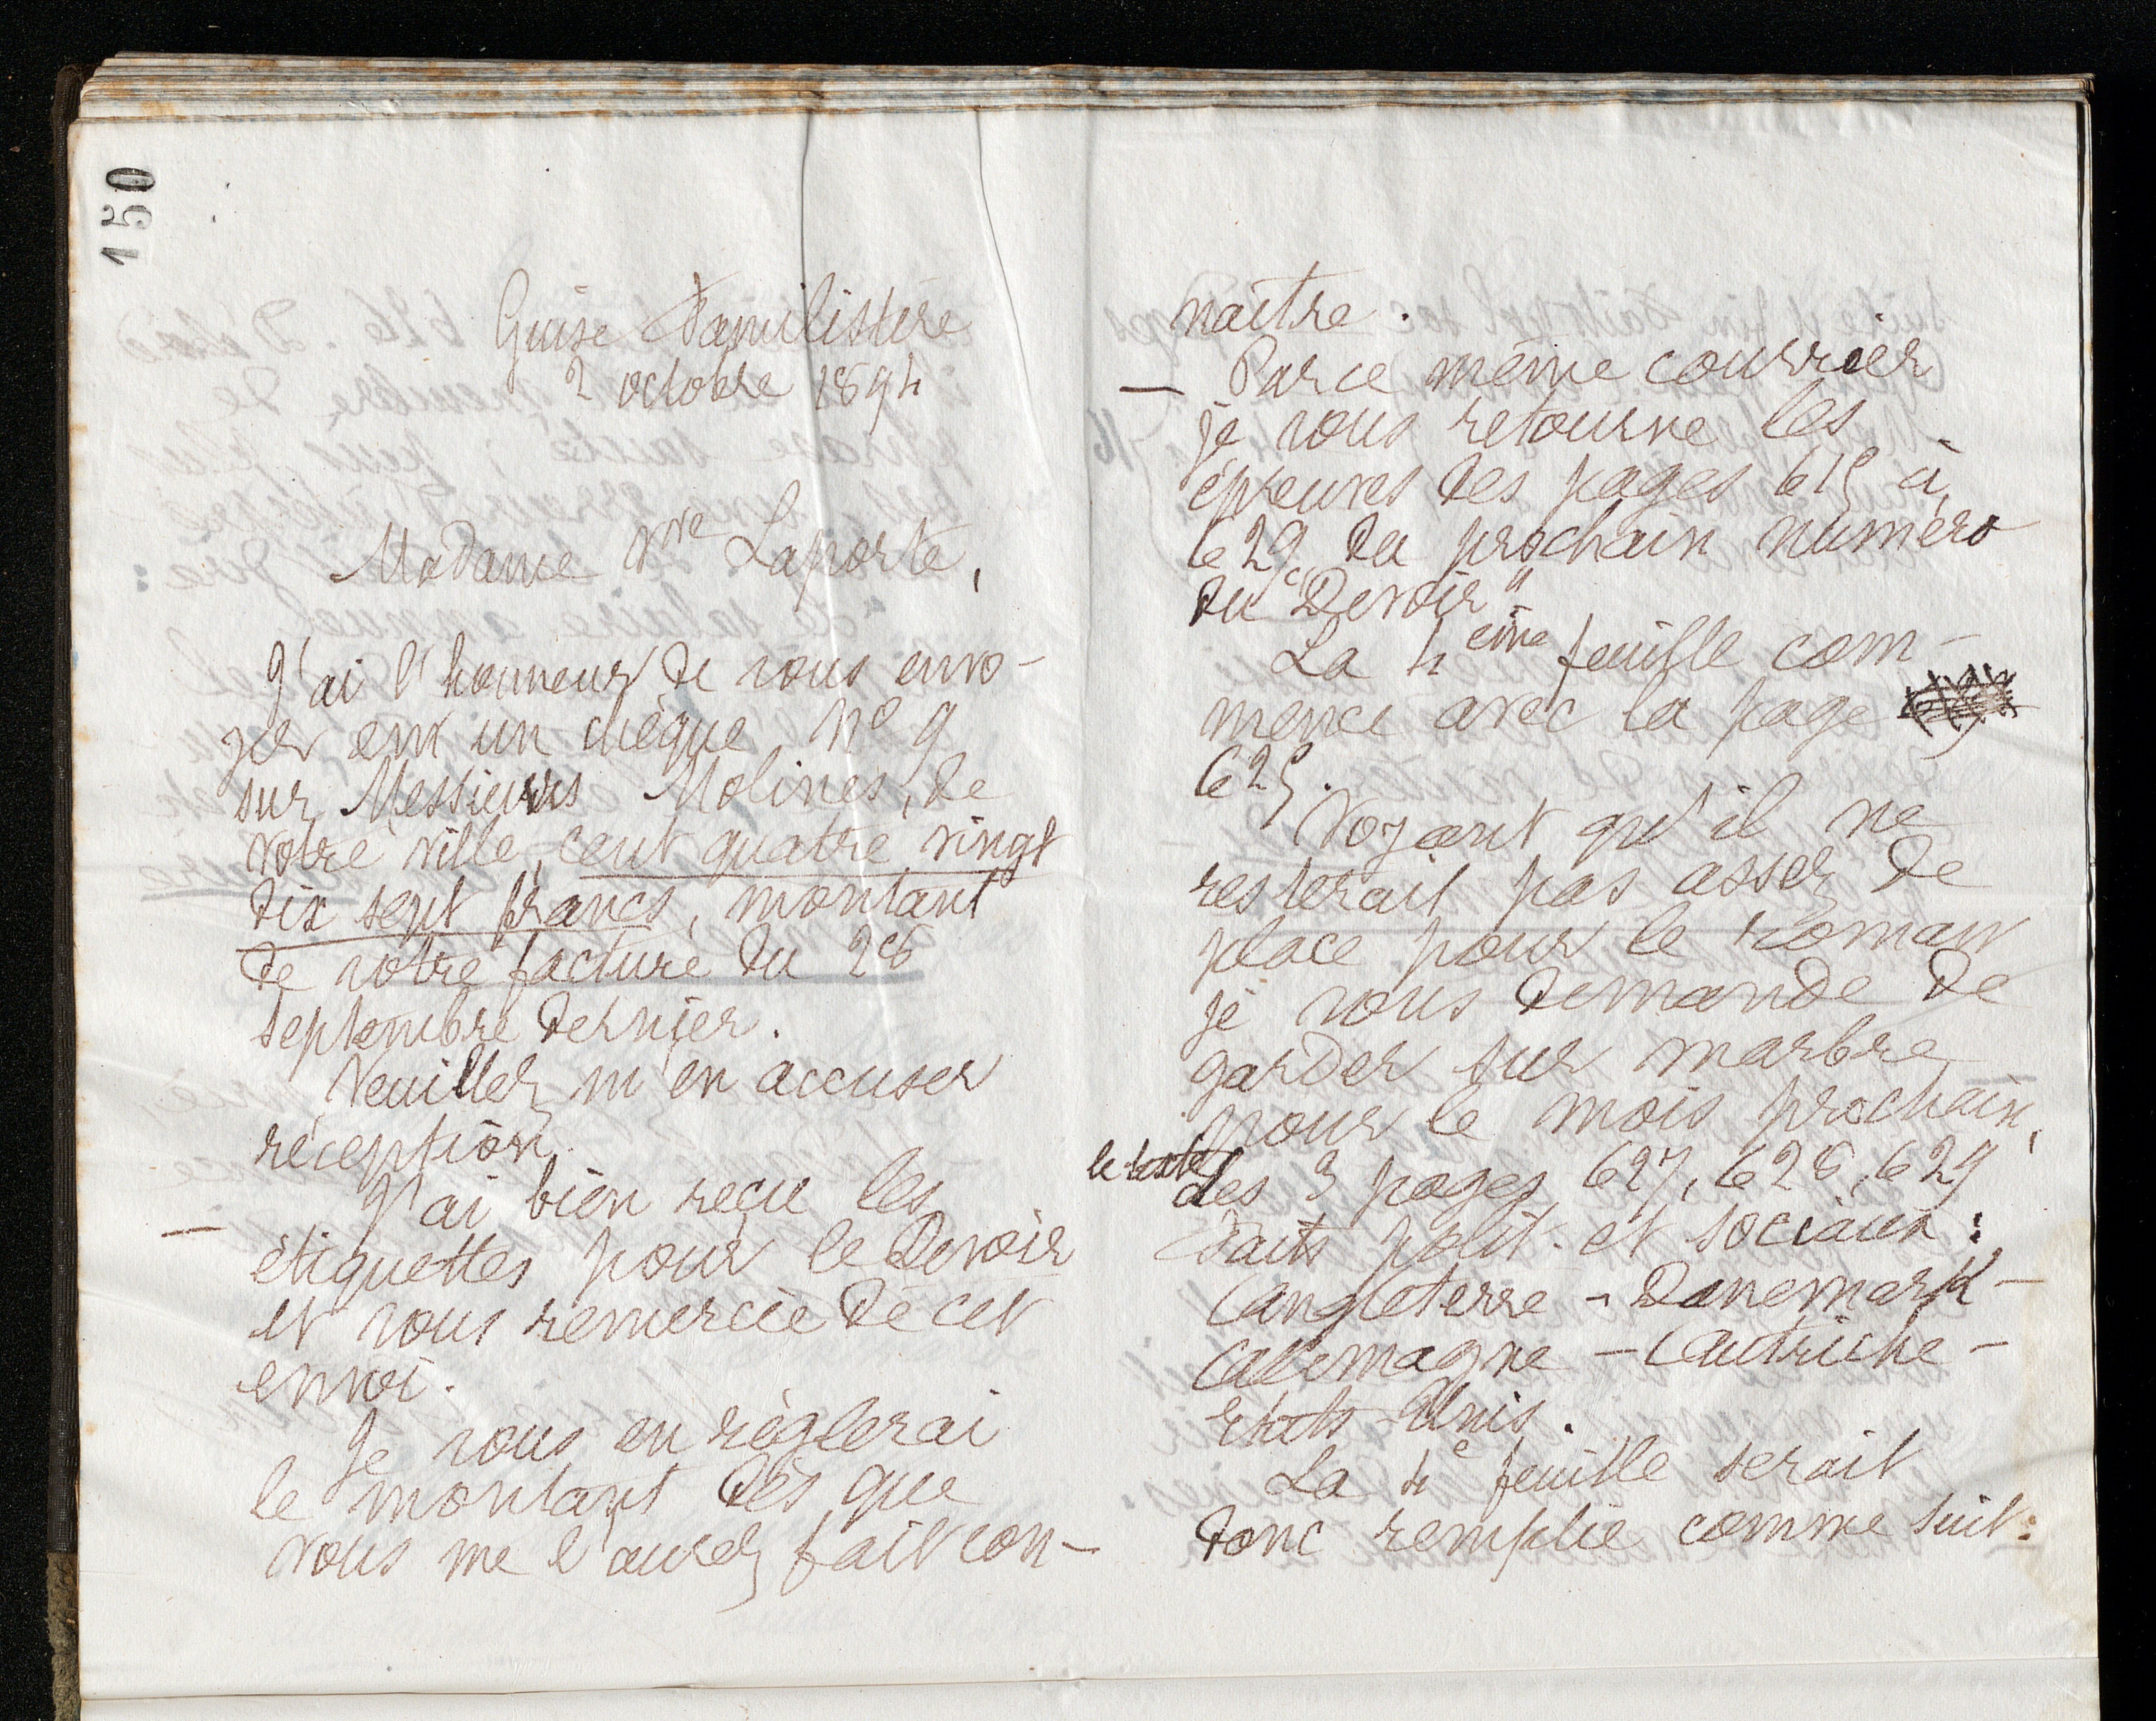 150
Guise Familistère
2 octobre 1894
Madame Vve Laporte,
J'ai l'honneur de vous envo-
yer en un chèque No 9
sur Messieurs Molines, de
votre ville, cent quatre vingt
dix sept francs, montant
de votre facture du 28
septembre dernier.
Veuillez m'en accuser
réception.
— J'ai bien reçu les
étiquettes pour le Devoir
et vous remercie de cet
envoi.
Je vous en règlerai
le montant dès que
vous me l'aurez fait con-
naître.
— Par ce même courrier
je vous retourne les
épreuves des pages 615 à
629 du prochain numéro
du "Devoir"
La 4eme feuille com-
mence avec la page
625.
Voyant qu'il ne
resterait pas assez de
place pour le roman
je vous demande de
garder sur marbre
pour le mois prochain,
le texte des 3 pages 627, 628, 629
Faits polit. et sociaux:
Angleterre - Danemark -
Allemagne - Autriche -
Etats-Unis.
La 4e feuille serait
donc remplie comme suit: